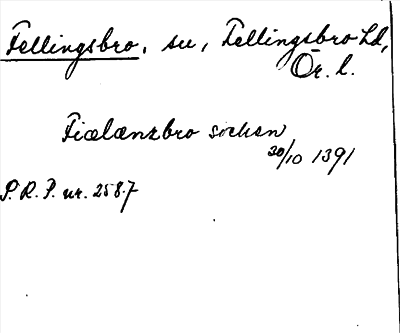 Fellingsbro, sn, Fellingsbro hd,
Ör. l.
Fiælænzbro sochen
30/10 1391
P.R.P. nr. 2587